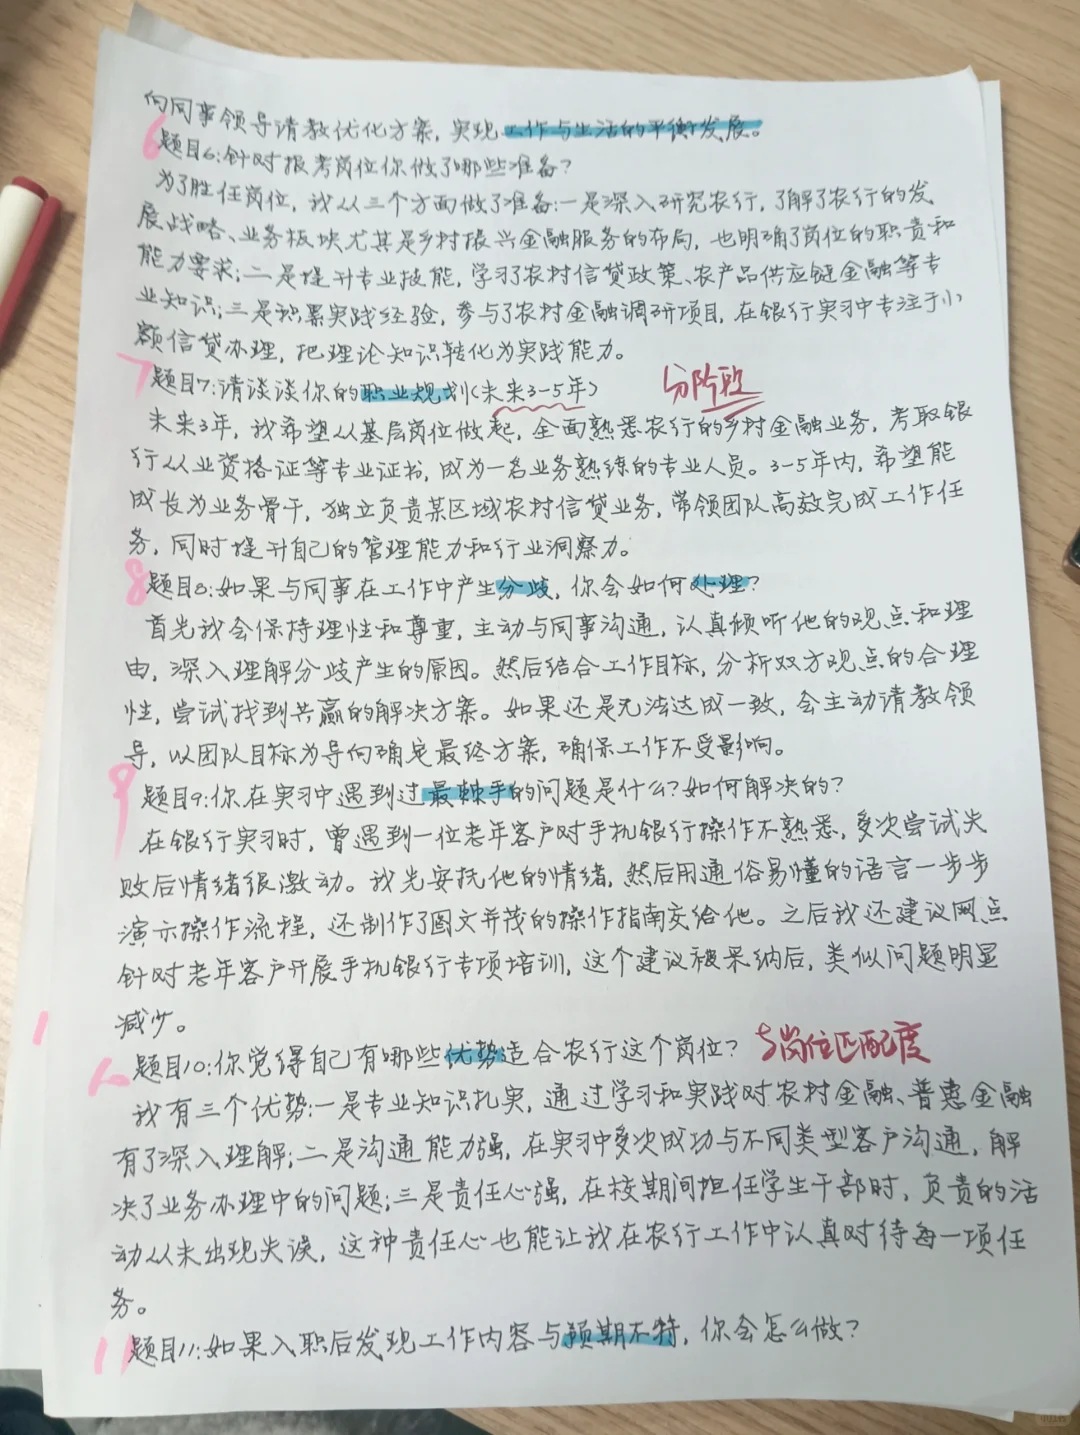 向同事领导请教优化方案，实现工作与生活的平衡发展。
6
题目6:针对报考岗位你做了哪些准备?
为了胜任岗位，我从三个方面做了准备:一是深入研究农行，了解了农行的发
展战略、业务板块尤其是乡村振兴金融服务的布局，也明确了岗位的职责和
能力要求;二是提升专业技能，学习了农村信贷政策、农产品供应链金融等专
业知识;三是积累实践经验，参与了农村金融调研项目，在银行实习中专注于小
额信贷办理，把理论知识转化为实践能力。
7
题目7:请谈谈你的职业规划(未来3-5年) 分阶段
未来3年，我希望从基层岗位做起，全面熟悉农行的乡村金融业务，考取银
行从业资格证等专业证书，成为一名业务熟练的专业人员。3-5年内，希望能
成长为业务骨干，独立负责某区域农村信贷业务，带领团队高效完成工作任
务，同时提升自己的管理能力和行业洞察力。
8
题目8:如果与同事在工作中产生分歧，你会如何处理?
首先我会保持理性和尊重，主动与同事沟通，认真倾听他的观点和理
由，深入理解分歧产生的原因。然后结合工作目标，分析双方观点的合理
性，尝试找到共赢的解决方案。如果还是无法达成一致，会主动请教领
导，以团队目标为导向确定最终方案，确保工作不受影响。
9
题目9:你在实习中遇到过最棘手的问题是什么?如何解决的?
在银行实习时，曾遇到一位老年客户对手机银行操作不熟悉，多次尝试失
败后情绪很激动。我先安抚他的情绪，然后用通俗易懂的语言一步步
演示操作流程，还制作了图文并茂的操作指南交给他。之后我还建议网点
针对老年客户开展手机银行专项培训，这个建议被采纳后，类似问题明显
减少。
题目10:你觉得自己有哪些优势适合农行这个岗位? 与岗位匹配度
我有三个优势:一是专业知识扎实，通过学习和实践对农村金融、普惠金融
有了深入理解;二是沟通能力强，在实习中多次成功与不同类型客户沟通，解
决了业务办理中的问题;三是责任心强，在校期间担任学生干部时，负责的活
动从未出现失误，这种责任心也能让我在农行工作中认真对待每一项任
务。
11
题目11:如果入职后发现工作内容与预期不符，你会怎么做?